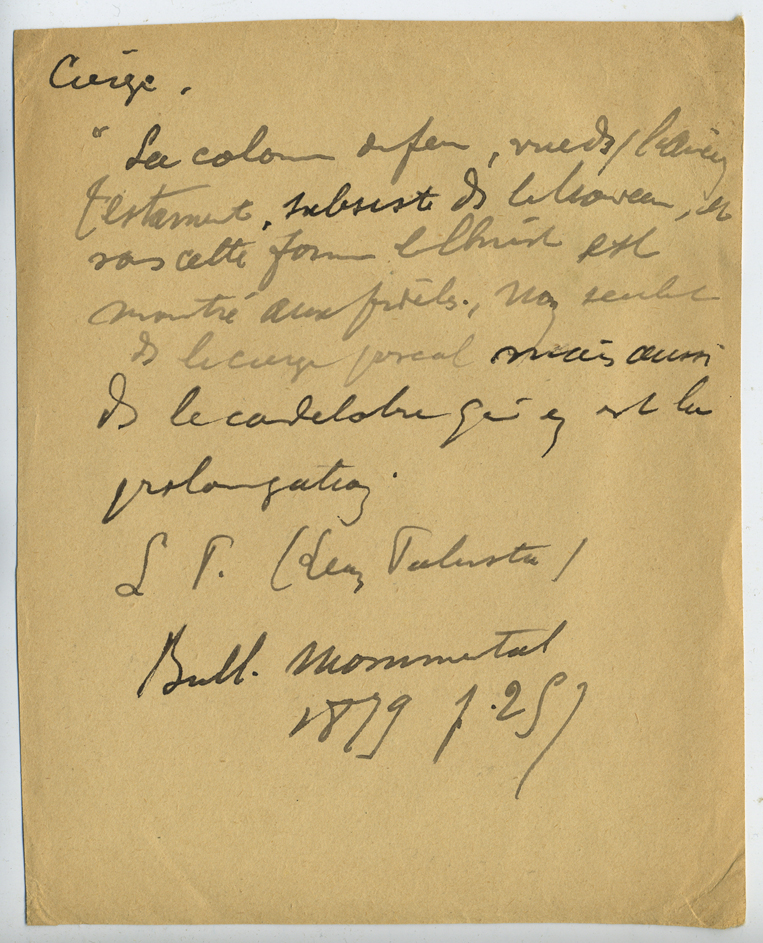 Cierge.
" La colonne de feu, vue ds l'ancien
testament, subsiste ds le Nouveau, et
sous cette forme le Christ est
montré aux fidèles, non seulet
ds le cierge pascal mais aussi
ds le candelabre qui en est la
prolongation.
L P. (Léon Palustre)
Bull. Monumental
1879 p.257